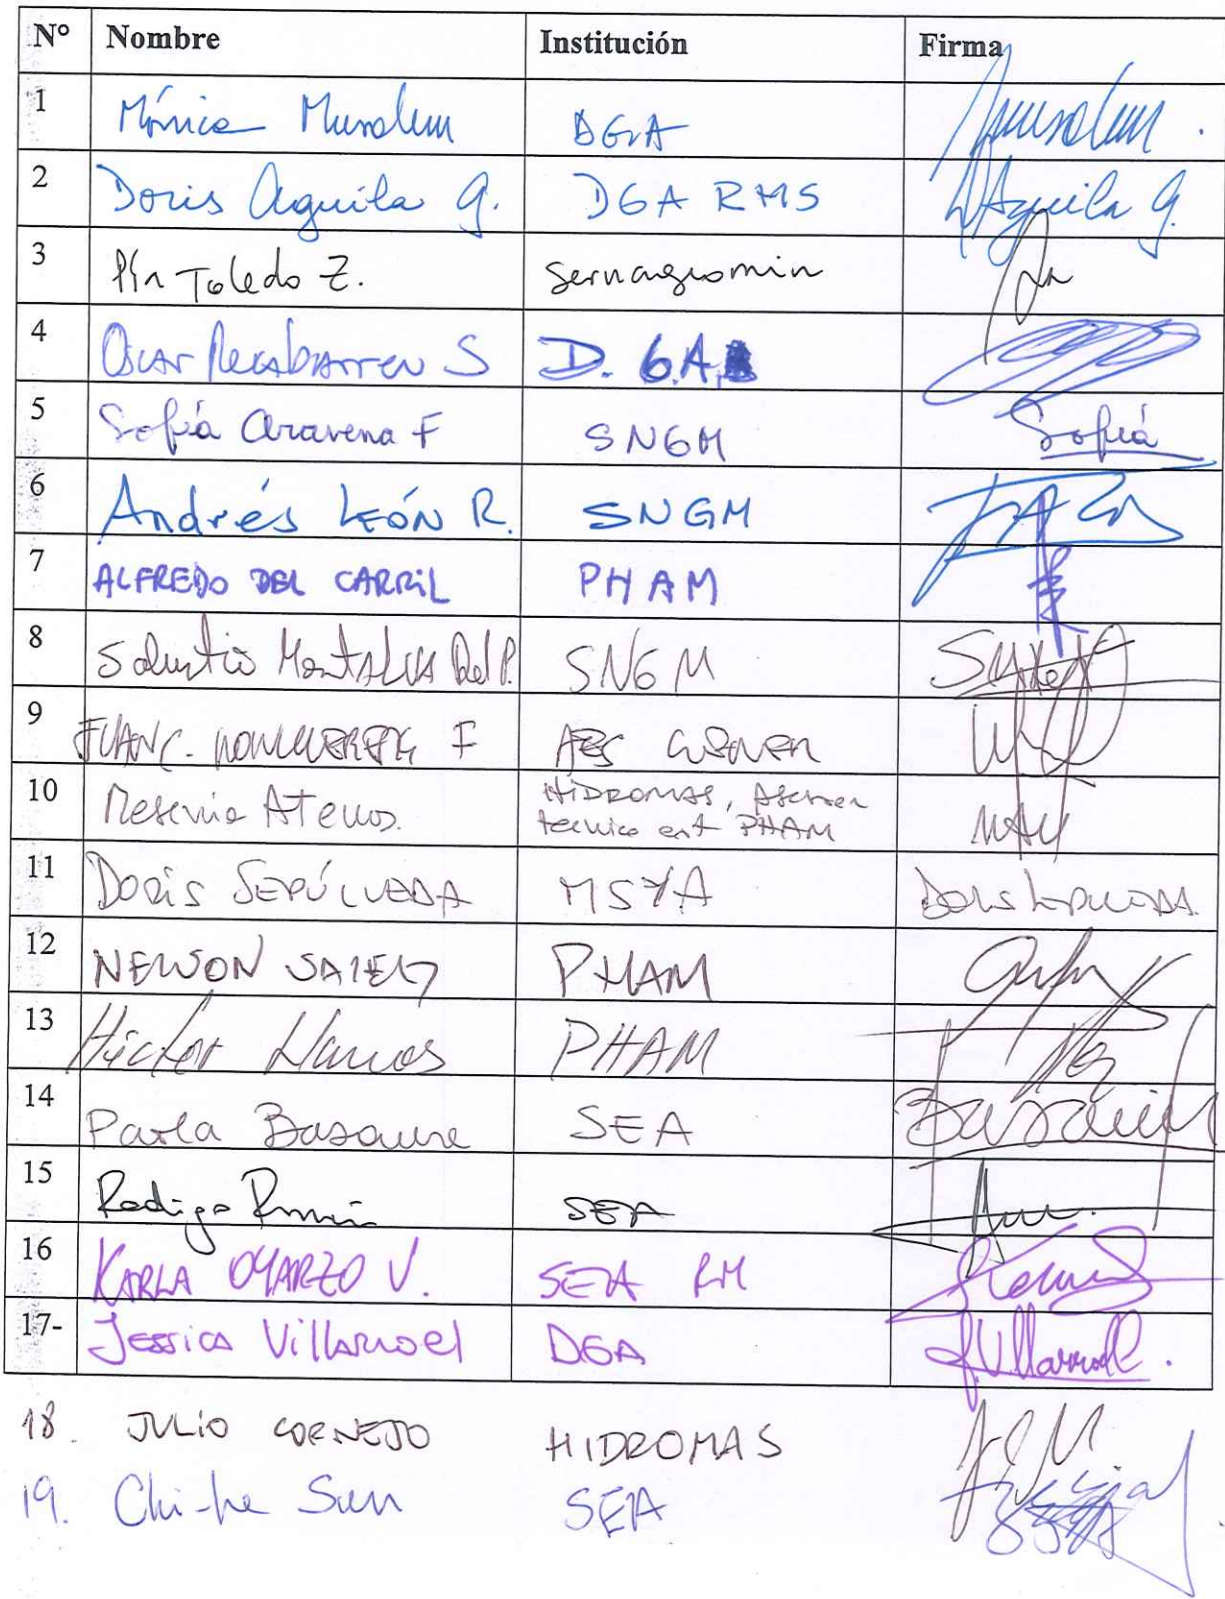 N° Nombre Institución Firma
1 Mónica Musalem DGA Musalem.
2 Doris Aguila G. DGA RMS DAguila G.
3 Pía Toledo Z. Sernageomin
4 Oscar Recabarren S D. G.A.
5 Sofía Aravena F SNGM Sofía
6 Andrés León R. SNGM
7 ALFREDO DEL CARRIL PHAM
8 Salustio Montalva Del P. SNGM
9 F AES GENER
10 Atenas. HIDROMAS, Asesor
tecnico ext PHAM
11 DORIS SEPÚLVEDA MSYA DORIS SEPULVEDA
12 NELSON PHAM
13 Héctor Llanos PHAM
14 Paola Basaure SEA Basaure
15 Rodrigo SEA
16 KARLA OYARZO V. SEA RM
17- Jessica Villarroel DGA J.Villarroel.
18. JULIO CORNEJO HIDROMAS
19. Chi-he Sun SEA